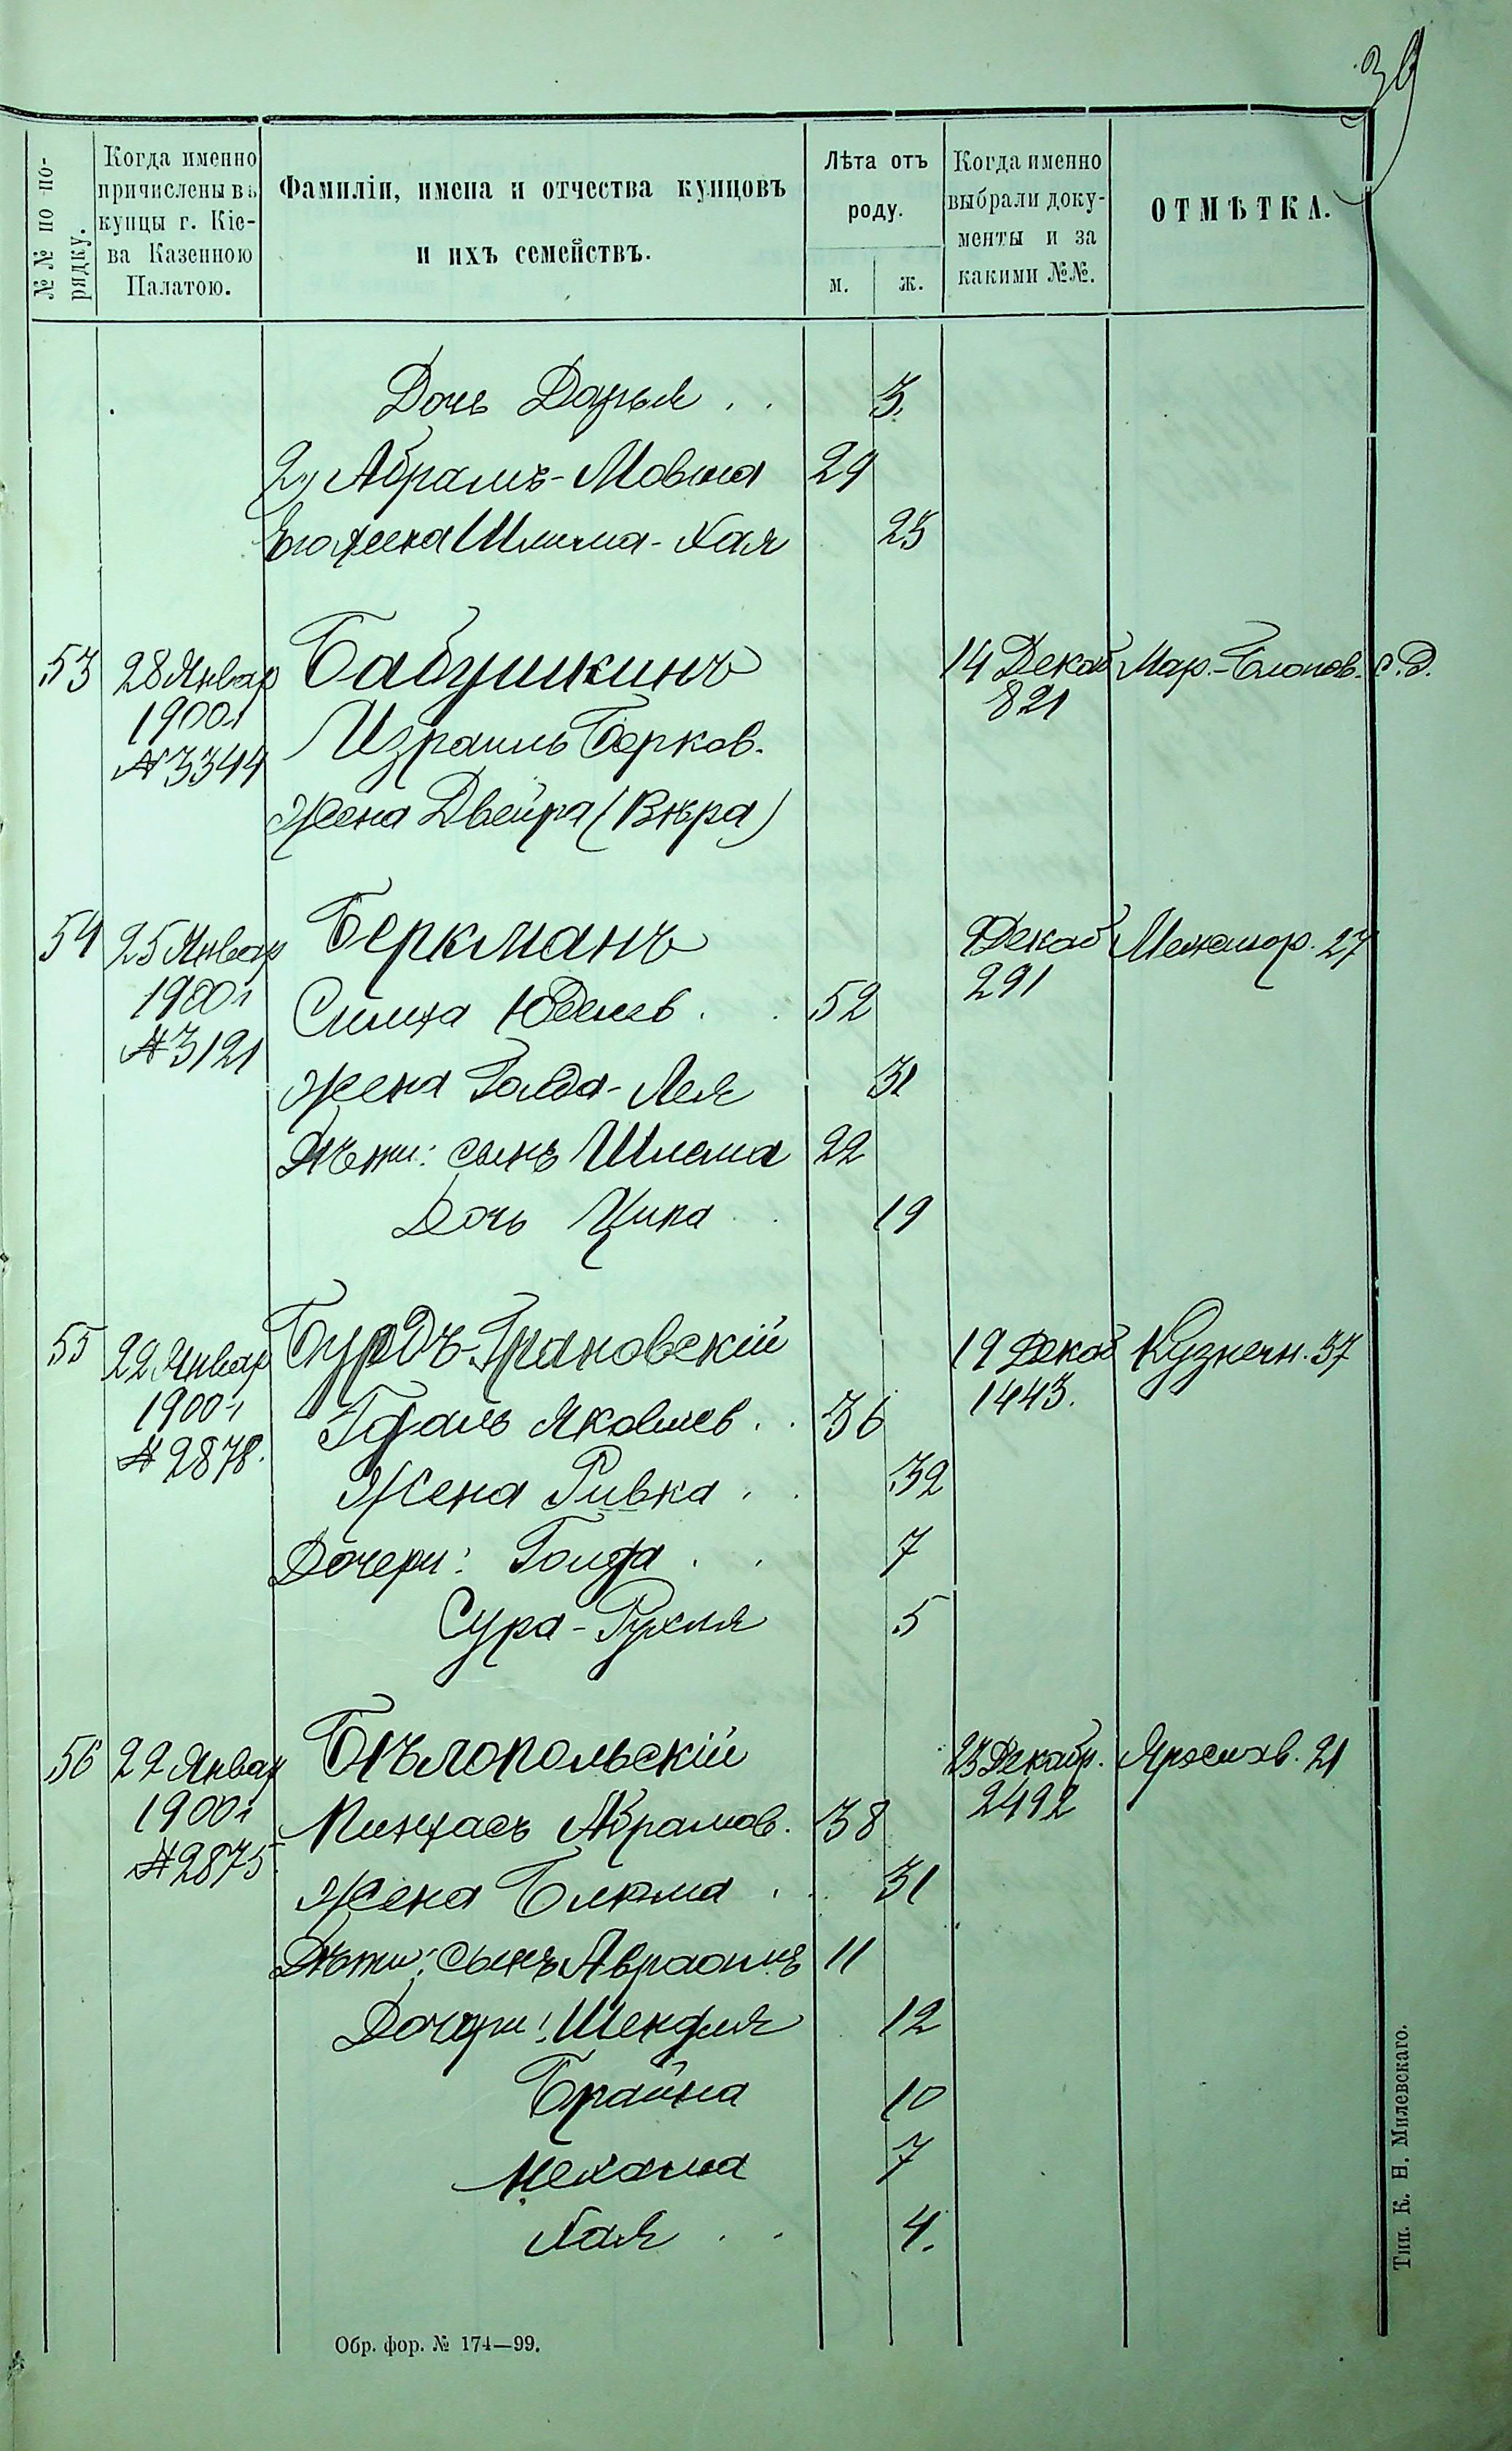 39
№№ по по-
рядку.
Когда именно
причислены въ
купцы г. Кіе-
ва Казенною
Палатою.
Фамиліи, имена и отчества купцовъ
и ихъ семействъ.
Лѣта отъ
роду.
м. ж.
Когда именно
выбрали доку-
менты и за
какими №№.
ОТМѢТКА.
Дочь Дарья . . 3.
2, Абрамъ-Мовша 29
Его жена Шлима-Хая 25
53 28 Январ Бабушкинъ 14 Декаб Мар.-Благов. с. д.
1900 г 821
Израиль Берков.
№ 3344
Жена Двейра (Вѣра)
54 25 Январ Беркманъ Декаб Межигор. 27
1900 г Симха Юделев . . 52 291
№ 3121
Жена Голда-Лея 31
Дѣти: сынъ Шлема 22
Дочь Ципа . . 19
55 22 Январ Бурдъ-Грановскій 19 Декаб Кузнечн. 37
1900 г Гдаль Яковлев . . 36 1443.
№ 2878.
Жена Ривка . . 32
Дочери: Голда . . 7
Сура-Рухля 5
56 22 Январ Бѣлопольскій 23 Декабр. Ярослав. 21
1900 г Пинхасъ Абрамов. 38 2492
№ 2875
Жена Блюма . . 31
Дѣти: сынъ Авраамъ 11
Дочери: Шендля 12
Брайна 10
Нехама 7
Хая . . 4.
Обр. фор. № 174—99.
Тип. К. Н. Милевскаго.